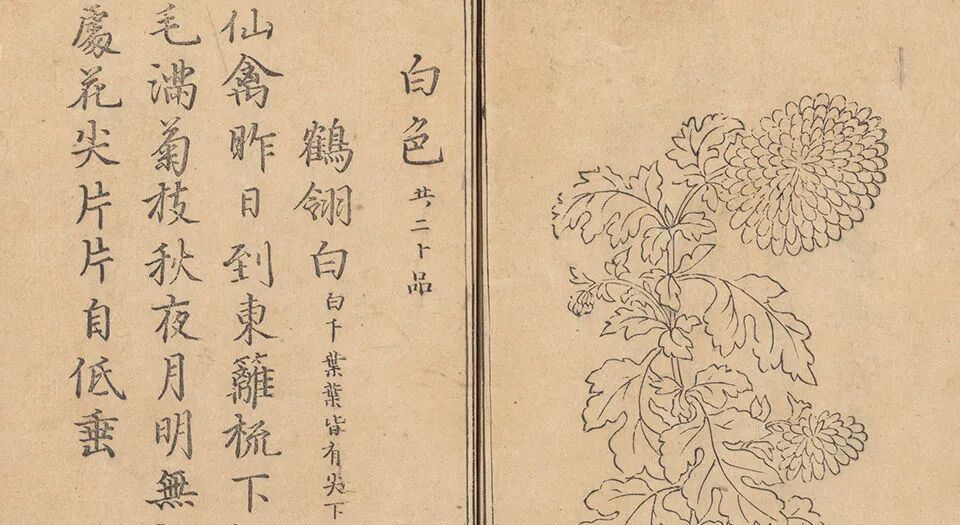 白色 共二十品
鶴翎白 白千葉葉皆有尖下
仙禽昨日到東籬梳下
毛滿菊枝秋夜月明無
處花尖片片自低垂